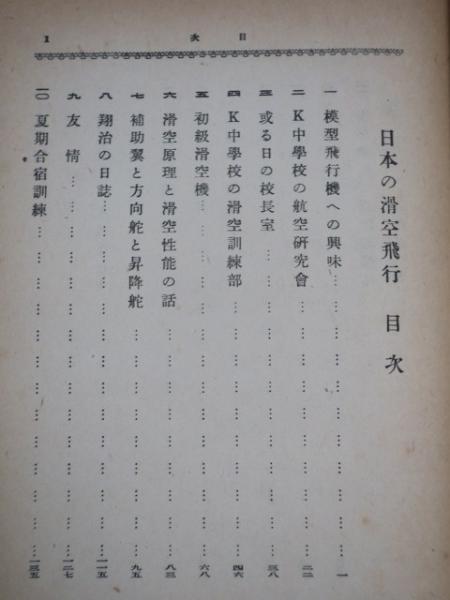 目次
1
日本の滑空飛行 目次
一 模型飛行機への興味…………………………一
二 K中學校の航空研究會…………………………二二
三 或る日の校長室…………………………三八
四 K中學校の滑空訓練部…………………………四六
五 初級滑空機…………………………六八
六 滑空原理と滑空性能の話…………………………八三
七 補助翼と方向舵と昇降舵…………………………九五
八 翔治の日誌…………………………一一五
九 友情…………………………一二七
一〇 夏期合宿訓練…………………………一三五